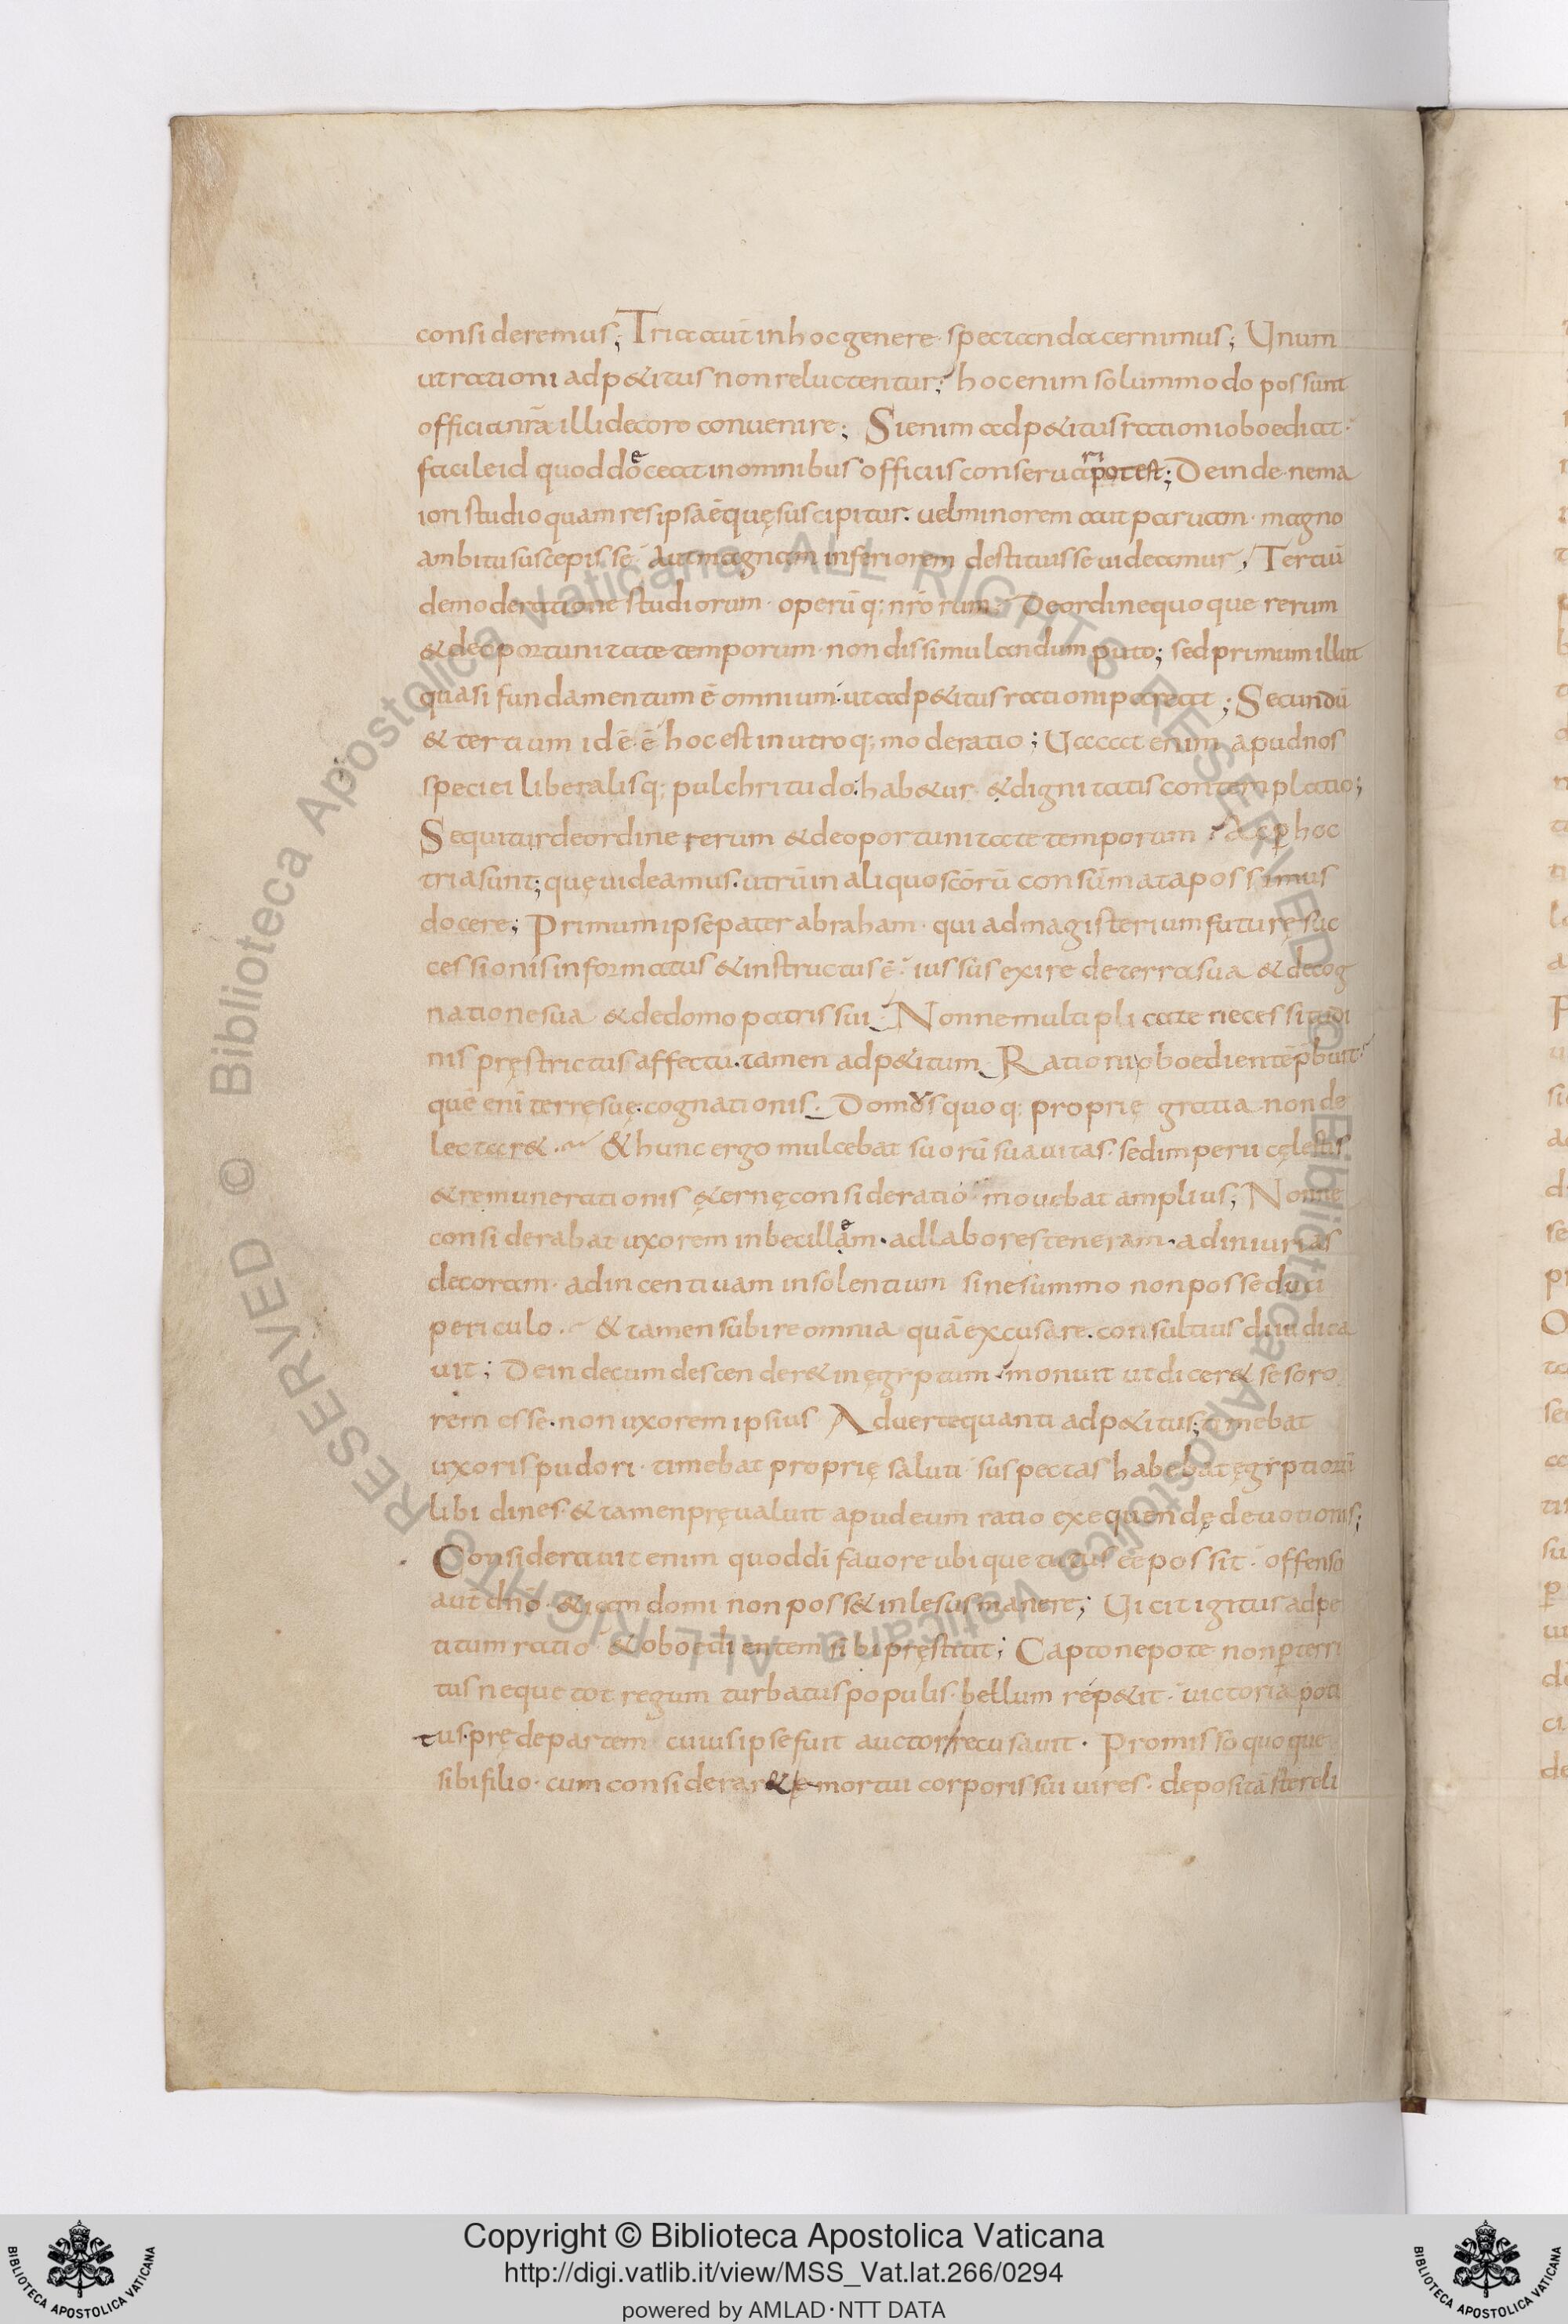 consideremus; Tria aut̄ in hoc genere spectanda cernimus; Unum
ut rationi adp&itus non reluctentur; hoc enim solummodo possunt
officia nr̄a illi decoro convenire; Si enim adp&itus rationi oboediat·
facile id quod doceat in omnibus officiis conservari potest; Deinde· ne ma
iori studio quam res ipsa ē quę suscipitur· vel minorem aut parvam· magno
ambitu suscepisse· aut magnam inferiorem destituisse videamur; Tertiū
de moderatione studiorum· operūq; nr̄orum; De ordine quoque rerum
& de oportunitate temporum· non dissimulandum puto; sed primum illut
quasi fundamentum ē omnium· ut adp&itus rationi pareat; Secundū
& tertium id ē· ē hoc est in utroq; moderatio; Uacat enim apud nos
speciei liberalisq; pulchritudo· hab&ur & dignitatis contemplatio;
Sequitur de ordine rerum & de oportunitate temporum· Ac p̄ hoc
tria sunt; quę videamus· utrū in aliquo sc̄orū consūmata possimus
docere; Primum ipse pater abraham· qui ad magisterium futurę suc
cessionis informatus & instructus ē· iussus exire de terra sua & de cog
natione sua & de domo patris sui· Nonne multiplicate necessitudi
nis pręstrictus affectu· tamen adp&itum Rationi oboedientē p̄buit·
quē enī terrę suę· cognationis· Domus quoq; proprię gratia non de
lectar&· & hunc ergo mulcebat suorū suavitas· sed imperii cęlestis
& remunerationis &ernę consideratio movebat amplius; Nonne
considerabat uxorem inbecillam· ad labores teneram· ad iniurias
decoram· ad incentivam insolentium sine summo non posse duci
periculo· & tamen subire omnia quā excusare· consultius diiudica
vit; Deinde cum descender& in ęgyptum· monuit ut dicer& se soro
rem esse· non uxorem ipsius Adverte quanti adp&itus; timebat
uxoris pudori· timebat proprię saluti· suspectas habebat ęgyptiorū
libidines· & tamen pręvaluit apud eum ratio exequendę devotionis;
Consideravit enim quod dī favore ubique tutus eē possit· offenso
aut dn̄o· &iam domi non poss& inlesus manere; Vicit igitur adpe
titum ratio & oboedientem sibi pręstitit; Capto nepote non p̄terri
tus neque tot regum turbatus populis· bellum rep&it· victoria poti
tus· prędę partem cuius ipse fuit auctor recusavit· Promisso quoque
sibi filio· cum considerar& emortui corporis sui vires· depositā stereli
Copyright © Biblioteca Apostolica Vaticana
http://digi.vatlib.it/view/MSS_Vat.lat.266/0294
powered by AMLAD·NTT DATA